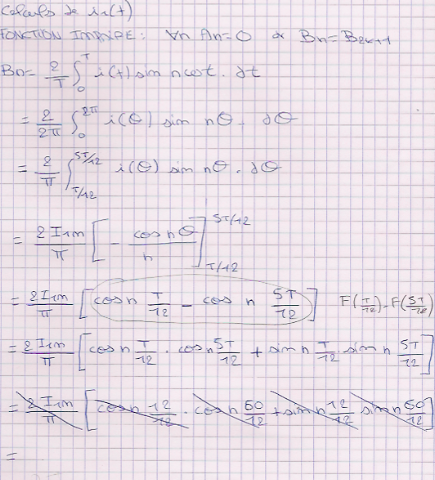 Calculs de i1(t)
FONCTION IMPAIRE : ∀n An=0 et Bn=B2k+1
Bn= 2/T ∫₀^T i(t) sin nωt . dt
= 2/2π ∫₀^2π i(θ) sin nθ . dθ
= 2/π ∫_T/12^5T/12 i(θ) sin nθ . dθ
= 2I1m/π [ - cos nθ/n ]_T/12^5T/12
= 2I1m/π [ cos n T/12 - cos n 5T/12 ] F(T/12) - F(5T/12)
= 2I1m/π [ cos n T/12 . cos n 5T/12 + sin n T/12 sin n 5T/12 ]
= 2I1m/π [ cos n 12/12 . cos n 60/12 + sin n 12/12 sin n 60/12 ]
=